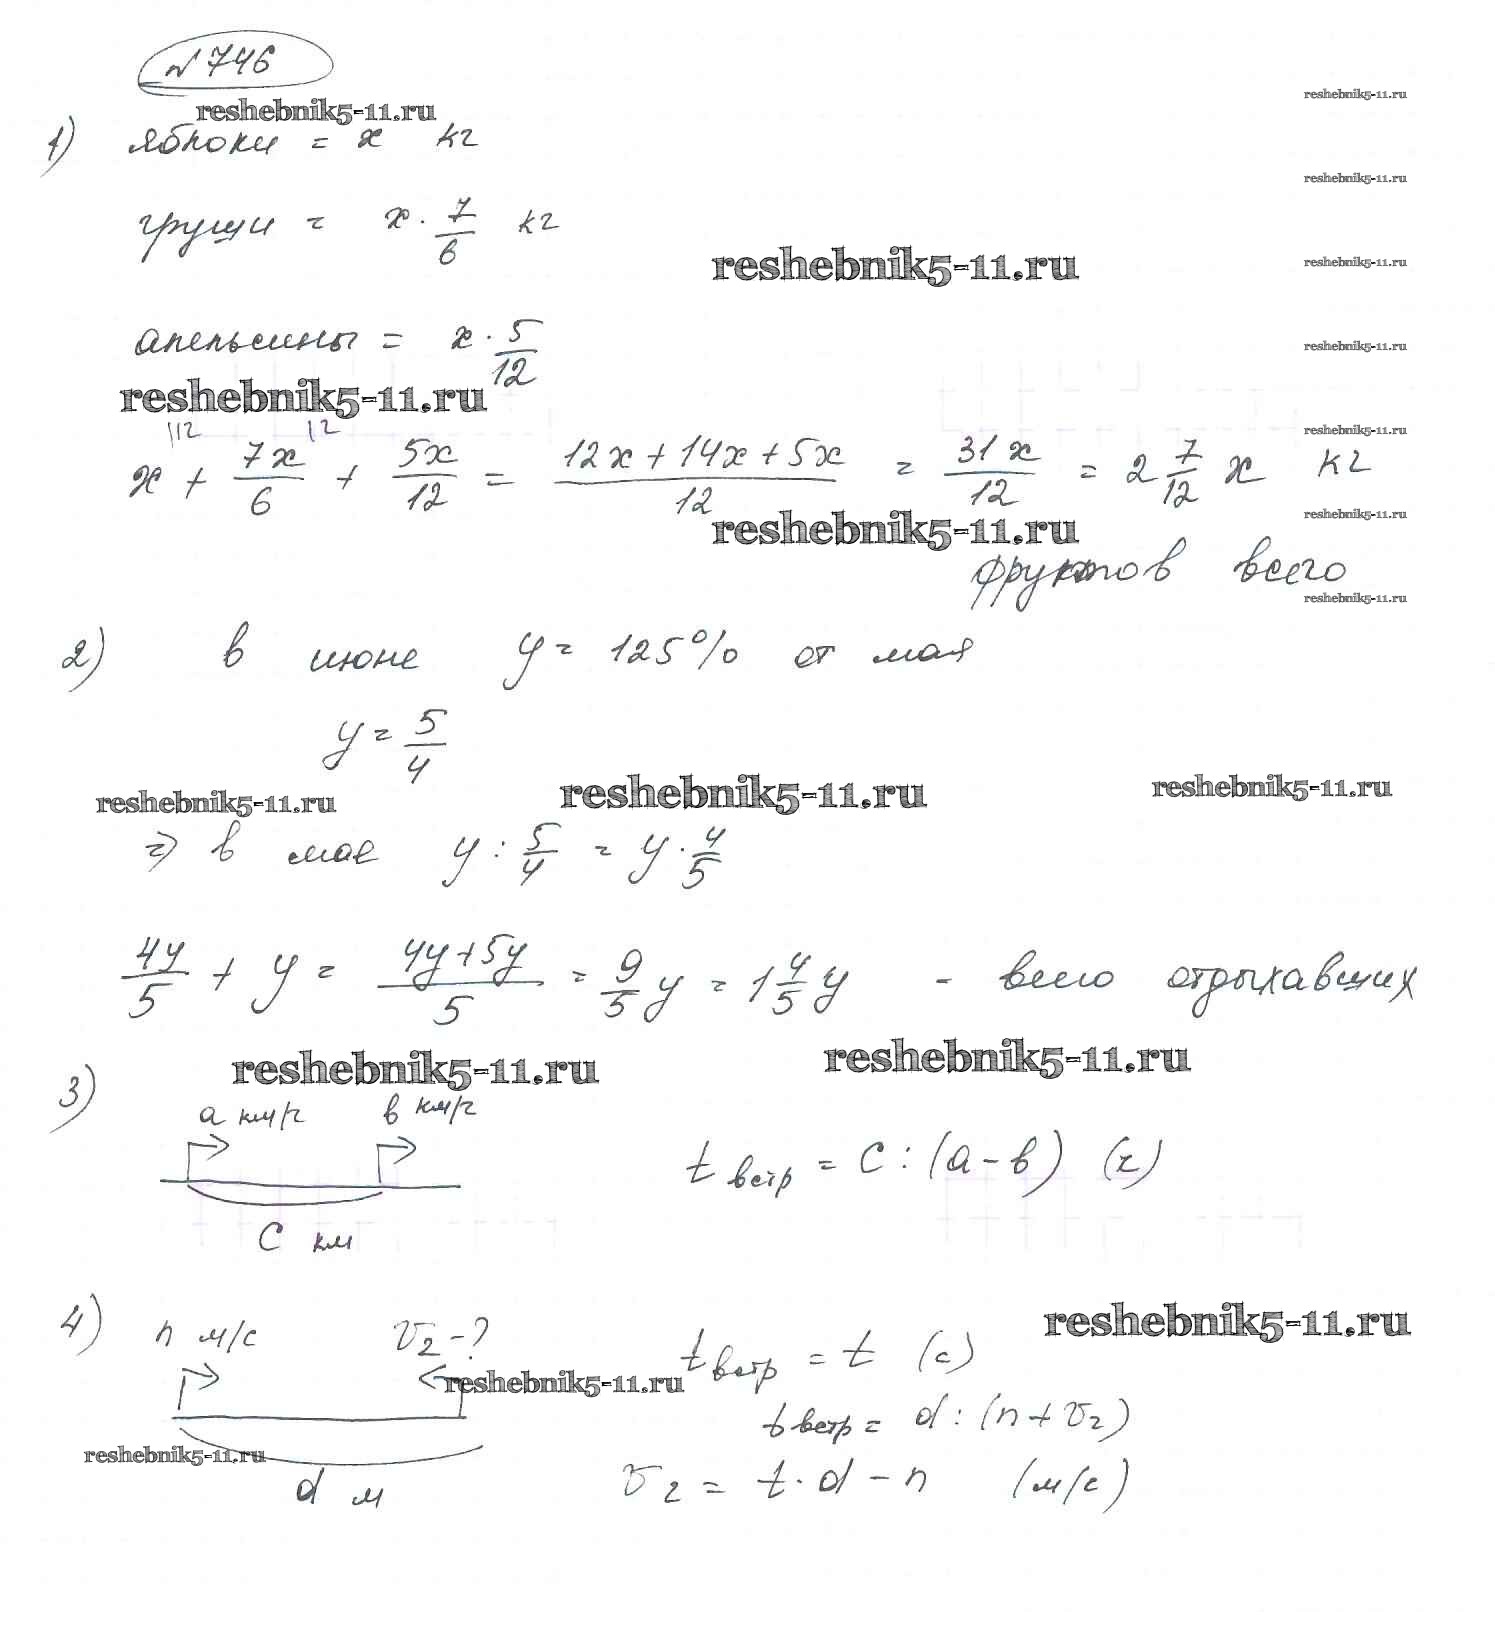 №746
reshebnik5-11.ru
reshebnik5-11.ru
1) яблоки = x кг
reshebnik5-11.ru
груши = x · 7/6 кг
reshebnik5-11.ru
reshebnik5-11.ru
апельсины = x · 5/12
reshebnik5-11.ru
reshebnik5-11.ru
x + 7x/6 + 5x/12 = 12x + 14x + 5x/12 = 31x/12 = 2 7/12 x кг
reshebnik5-11.ru
reshebnik5-11.ru
reshebnik5-11.ru
фруктов всего
reshebnik5-11.ru
2) в июне y = 125% от мая
y = 5/4
reshebnik5-11.ru
reshebnik5-11.ru
reshebnik5-11.ru
=> в мае y : 5/4 = y · 4/5
4y/5 + y = 4y+5y/5 = 9/5 y = 1 4/5 y - всего отдыхавших
reshebnik5-11.ru
reshebnik5-11.ru
3) a км/ч в км/ч
t встр = c : (a - в) (ч)
c км
reshebnik5-11.ru
4) n м/с v2 - ?
t встр = t (с)
reshebnik5-11.ru
t встр = d : (n + v2)
reshebnik5-11.ru
d м
v2 = t · d - n (м/с)